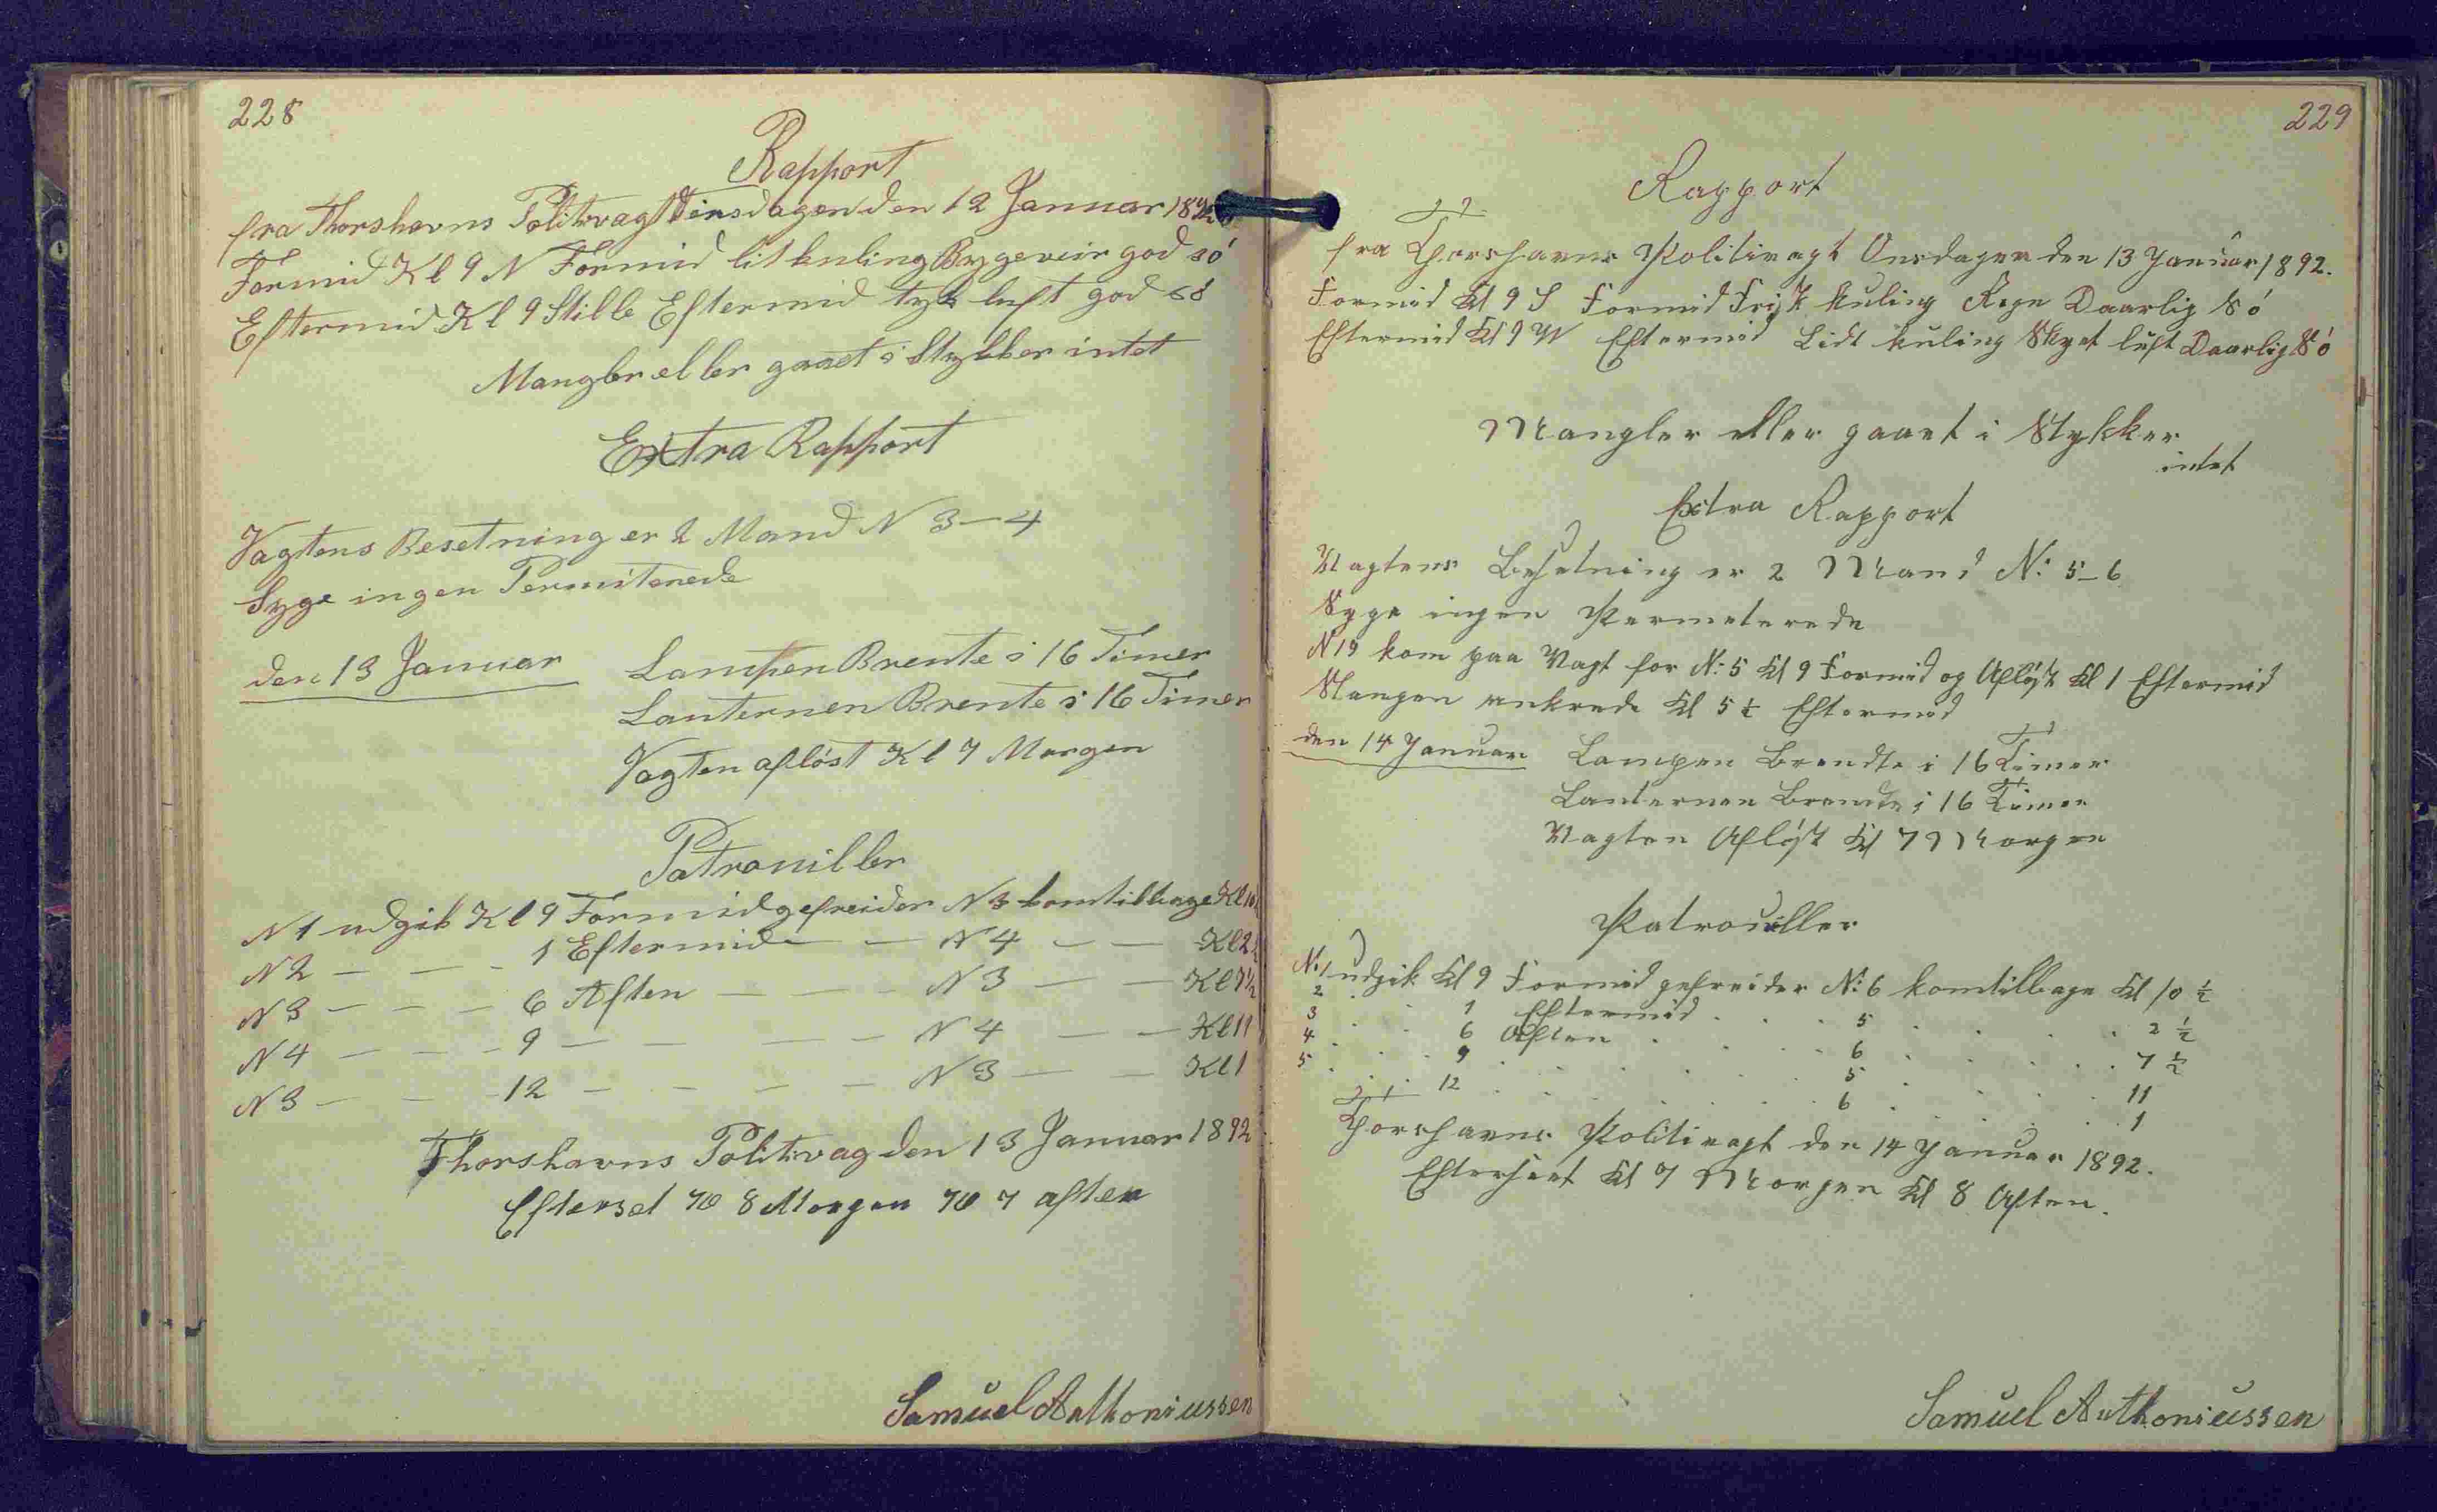 228
Rapport
fra Thorshavns Politivagt Tirsdagen den 12 Januar 1892
Formid Kl 9 N Formid lit kuling Bygeveir god só
Eftermid Kl 9 Stille Eftermid tyk luft god só
Mangler eller gaaet i Stykker intet
Extra Rapport
Vagtens Besetning er 2 Mand N 3–4
Syge ingen Permiterede
den 13 Januar Lampen Brente i 16 Timer
Lanternen Brente i 16 Timer
Vagten afløst Kl 7 Morgen
Patrouiller
N 1 udgik Kl 9 Formid gefreider N 3 kom tilbage Kl 10½
N 2 — — - 1 Eftermid — — N 4 — — Kl 2½
N 3 — — - 6 Aften — — - N 3 — — Kl 7½
N 4 — — - 9 — — — — N 4 — — Kl 11
N 3 — — - 12 — — — — N 3 — — Kl 1
Thorshavns Politivag den 13 Januar 1892
Efterset Kl 8 Morgen Kl 7 aften
Samuel Anthoniussen
229
Rapport
fra Thorshavns Politivagt Onsdagen den 13 Januar 1892.
Formid Kl 9 S Formid Frisk kuling Regn Daarlig Só
Eftermid Kl 9 W Eftermid Lidt kuling Skyet luft Daarlig Só
Mangler eller gaaet i Stykker
intet
Extra Rapport
Vagtens Besetning er 2 Mand N: 5–6
Syge ingen Permeterede
N 19 kom paa Vagt for N: 5 Kl 9 Formid og Afløst Kl 1 Eftermid
ankrede Kl 5½ Eftermid
den 14 Januar Lampen Brendte i 16 Timer
Lanternen Brendte i 16 Timer
Vagten Afløst Kl 7 Morgen
Patrouiller
N: 1 udgik Kl 9 Formid gefreider N: 6 kom tilbage Kl 10 ½
2 . . 1 Eftermid . . . 5 . . . . 2 ½
3 . . 6 Aften . . . 6 . . . . 7 ½
4 . . . 9 . . . . . 5 . . . . 11
5 . . . 12 . . . . . 6 . . . . 1
Thorshavns Politivagt den 14 Januar 1892.
Efterseet Kl 7 Morgen Kl 8 Aften.
Samuel Anthoniussen